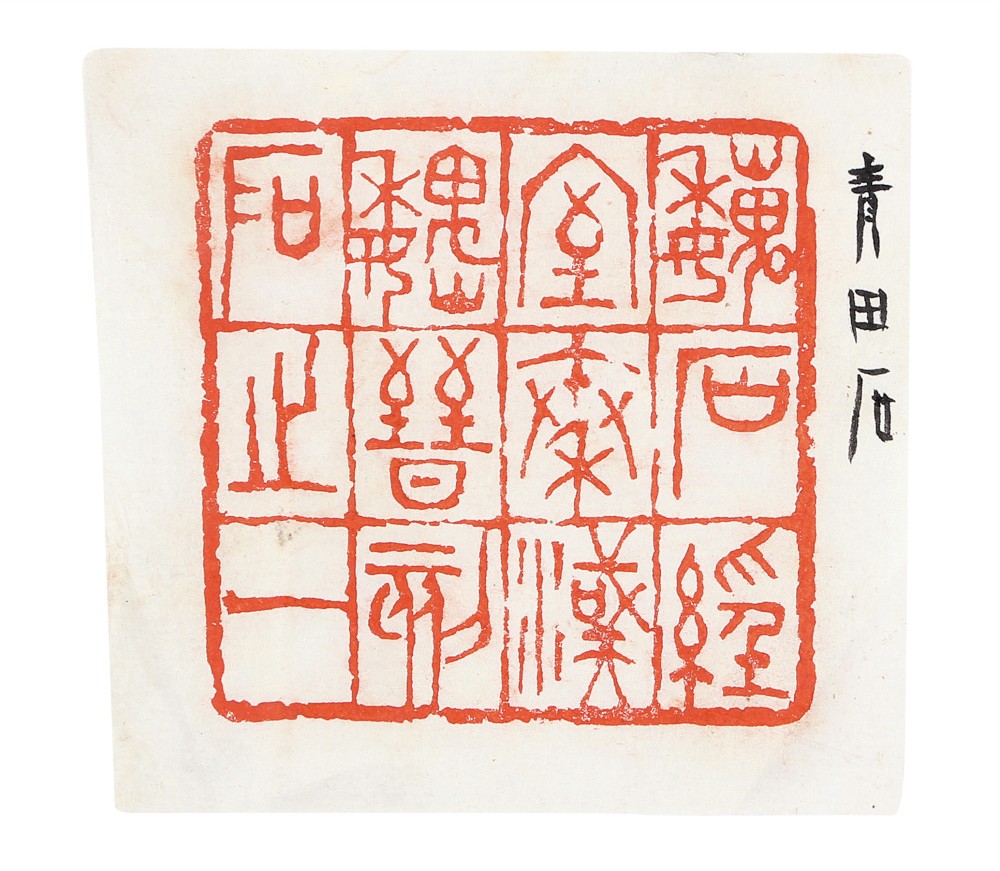 青田石
魏石經
室秦漢
魏晉
石止一